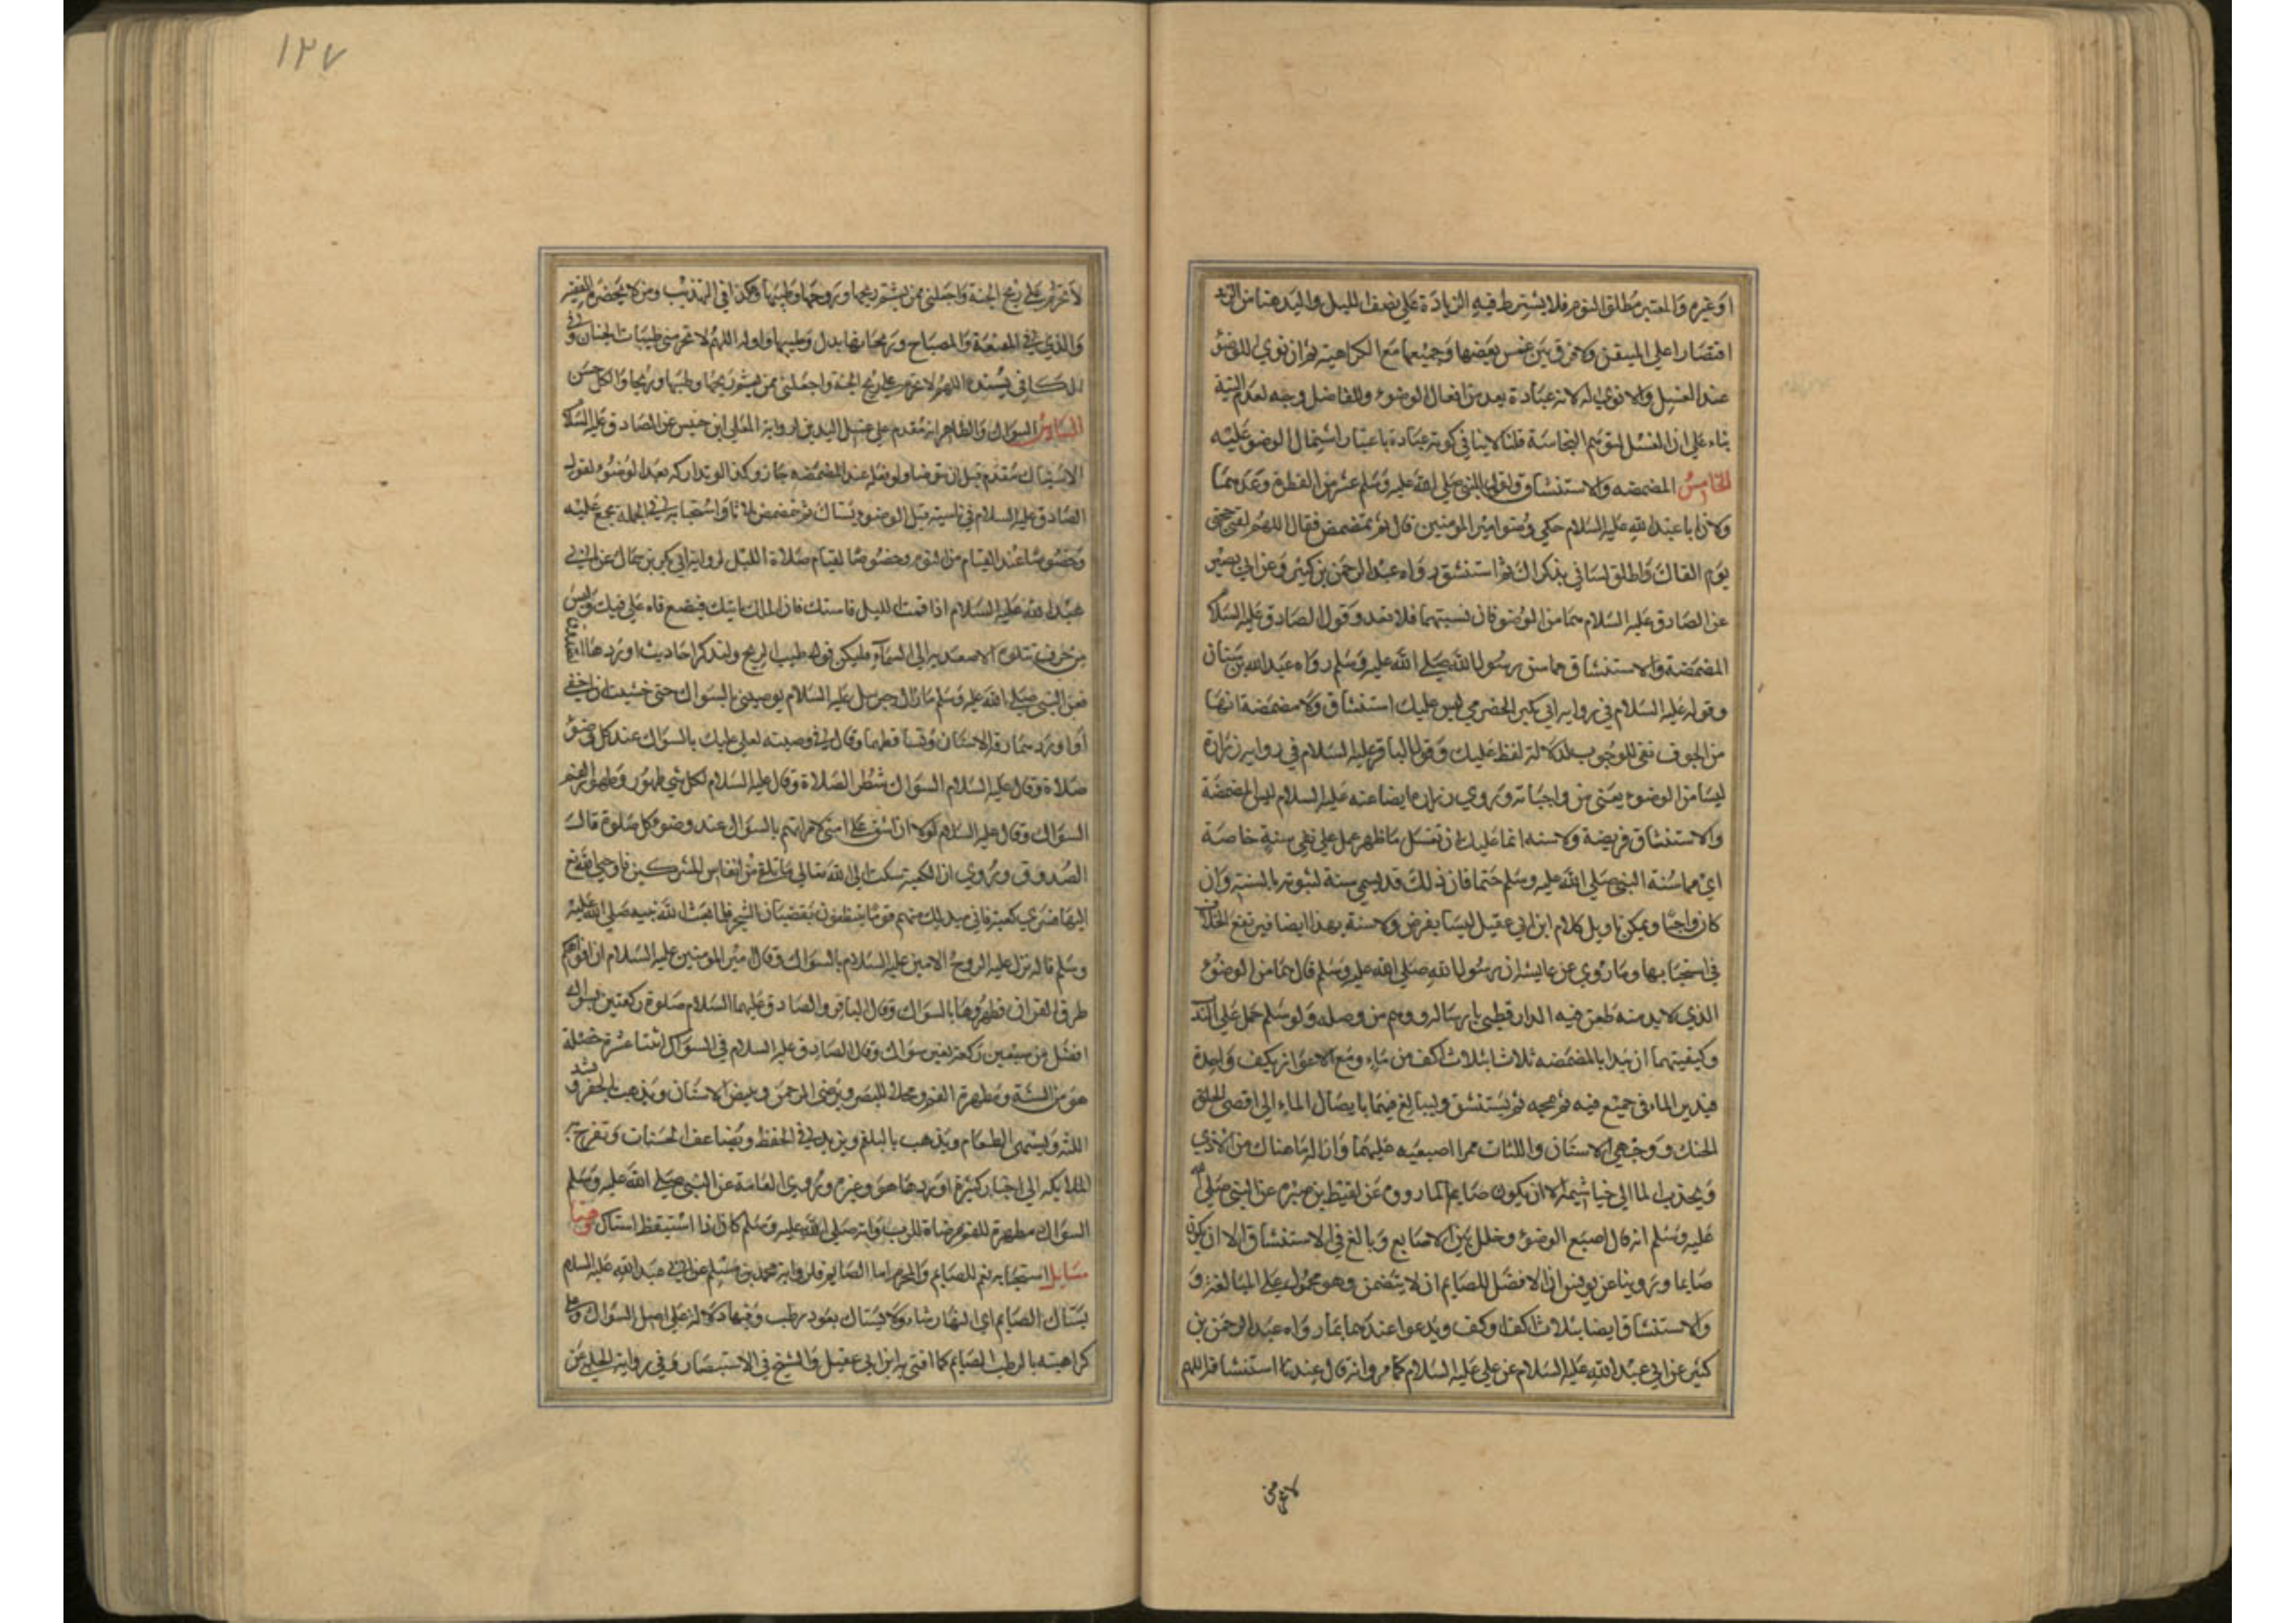 او غيره والمعتبر مطلق النوم فلا يشترط فيه الزيادة على نصف الليل واليد هنا من الزند
اقتصارا على المتيقن ولا فرق بين غمس بعضها وجميعها مع الكراهية ثم ان نوى للوضوء
عند الغسل والا نوى له لانه عبادة يعد من افعال الوضوء وللفاضل وجه لعدم النية
بناء على ان الغسل لتوهم النجاسة قلنا لا ينافي كونه عبادة باعتبار اشتمال الوضو عليه
الخامس المضمضه والاستنشاق ولقول النبي صلى الله عليه وسلم عشر من الفطرة وعدهما
ولان ابا عبد الله عليه السلام حكى وضوء امير المومنين قال ثم تمضمض فقال اللهم لقني حجتي
يوم القاك واطلق لساني بذكراك ثم استنشق رواه عبد الرحمن بن كثير وعن ابي بصير
عن الصادق عليه السلام هما من الوضو فان نسيتهما فلا تعد وقول الصادق عليه السلام
المضمضة والاستنشاق مما سن رسول الله صلى الله عليه وسلم رواه عبد الله بن سنان
وقوله عليه السلام في رواية ابي بكير الحضرمي ليس عليك استنشاق ولا مضمضة انها
من الجوف نفى للوجوب لدلالة لفظ عليك وقول الباقر عليه السلام في رواية زرارة
ليسا من الوضوء يعنى من واجباته وروى زرارة ايضا عنه عليه السلام ليس المضمضة
والاستنشاق فريضة ولا سنه انما عليك ان تغسل ما ظهر حمل على نفى سنة خاصة
اي مما سنه النبي صلى الله عليه وسلم حتما فان ذلك قد يسمى سنة لثبوته بالسنة وان
كان واجبا ويمكن تاويل كلام ابن ابي عقيل ليسا بفرض ولا سنة بهذا ايضا فيرتفع الخلاف
في استحبابها وما روى عن عايشة ان رسول الله صلى الله عليه وسلم قال هما من الوضوء
الذي لا بد منه طعن فيه الدارقطني بارساله ووهم من وصله ولو سلم حمل على الند
وكيفيتهما ان يبدا بالمضمضه ثلاثا بثلاث اكف من ماء ومع الاعواز بكف واحدة
فيدير الماء في جميع فيه ثم يمجه ثم يستنشق وليبالغ فيهما بايصال الماء الى اقصى الحلق
الحنك ووجهي الاسنان واللثات ممرا اصبعيه عليهما وازالة ما هناك من الاذى
ويجذب الما الى خياشيمه الا ان يكون صايما لما روى عن لقيط بن صبره عن النبي صلى الله
عليه وسلم انه قال اصبغ الوضوء وخلل بين الاصابع وبالغ في الاستنشاق الا ان تكون
صايما وروينا عن يونس ان الافضل للصايم ان لا يتضمض وهو محمول على المبالغة و
والاستنشاق ايضا بثلاث اكف او كف ويدعوا عندهما بما رواه عبد الرحمن بن
كثير عن ابي عبد الله عليه السلام عن علي عليه السلام كما مر وانه قال عند ما استنشاقه اللهم
١٢٧
لا تحرم على ريح الجنة واجعلني ممن يشم ريحها وروحها وطيبها وهكذا في التهذيب ومن لا يحضره الفقيه
والذي في المقنعة والمصباح وريحانها بدل وطيبها واوله اللهم لا تحرمني طيبات الجنان وفي
الكافي بسنده اللهم لا تحرم على ريح الجنة واجعلني ممن يشم ريحها وطيبها وريحها والكل حسن
السادس السواك والظاهر انه مقدم على غسل اليدين لرواية المعلى ابن خنيس عن الصادق عليه السلام
الاستياك مقدم قبل ان يتوضا ولو فعله عند المضمضه جاز وكذا لو تداركه بعد الوضوء لقول
الصادق عليه السلام في ناسيه قبل الوضوء يستاك ثم تمضمض ثلاثا واستحبابه في الجمله مجمع عليه
وخصوصا عند القيام من النوم وخصوصا لقيام صلاة الليل لرواية ابي بكر بن سمال عن ابي
عبد الله عليه السلام اذا قمت بالليل فاستك فان الملك ياتيك فيضع فاه على فيك وليس
من حرف تتلوه الا صعد به الى السماء فليكن فوك طيب الريح ولنذكر احاديث اوردها الصدوق
فعن النبي صلى الله عليه وسلم ما زال جبرييل عليه السلام يوصيني بالسواك حتى خشيت ان احفي
او ادرد وهما رقة الاسنان وتساقطهما وقال في وصيته لعلي عليك بالسواك عند كل وضوء
صلاة وقال عليه السلام السواك شطر الصلاة وقال عليه السلام لكل شي طهور وطهور الفم
السواك وقال عليه السلام لولا ان اشق على امتي لامرتهم بالسواك عند وضوء كل صلوة قال
الصدوق وروي ان الكعبة شكت الى الله تعالى ما تلقى من انفاس المشركين فاوحى الله تع
اليها قري كعبة فاني مبدلك منهم قوما يتنظفون بقضبان الشجر فلما بعث الله نبيه صلى الله عليه
وسلم قاله نزل عليه الروح الامين عليه السلام بالسواك وقال امير المومنين عليه السلام ان افواهكم
طرق القران فطهروها بالسواك وقال الباقر والصادق عليهما السلام صلوة ركعتين بسواك
افضل من سبعين ركعة بغير سواك وقال الصادق عليه السلام في السواك اثنتا عشرة خصلة
هو من السنة ومطهرة للفم ومجلاة للبصر ويرضي الرحمن ويبيض الاسنان ويذهب بالحفر ويشد
اللثه ويشهى الطعام ويذهب بالبلغم ويزيد في الحفظ ويضاعف الحسنات وتفرح به
الملايكه الى اخبار كثيرة اوردها هو وغيره وروى العامة عن النبي صلى الله عليه وسلم
السواك مطهرة للفم مرضاة للرب وانه صلى الله عليه وسلم كان اذا استيقظ استاك وهنا
مسايل استحبابه يعم للصايم والمحرم اما الصايم فلرواية محمد بن مسلم عن ابي عبد الله عليه السلام
يستاك الصايم اي النهار شاء ولا يستاك بعود رطب وفيها دلالة على اصل السواك وعلى
كراهيته بالرطب للصايم كما افتى به ابن ابي عقيل والشيخ في الاستبصار وفي رواية الحلبي عن